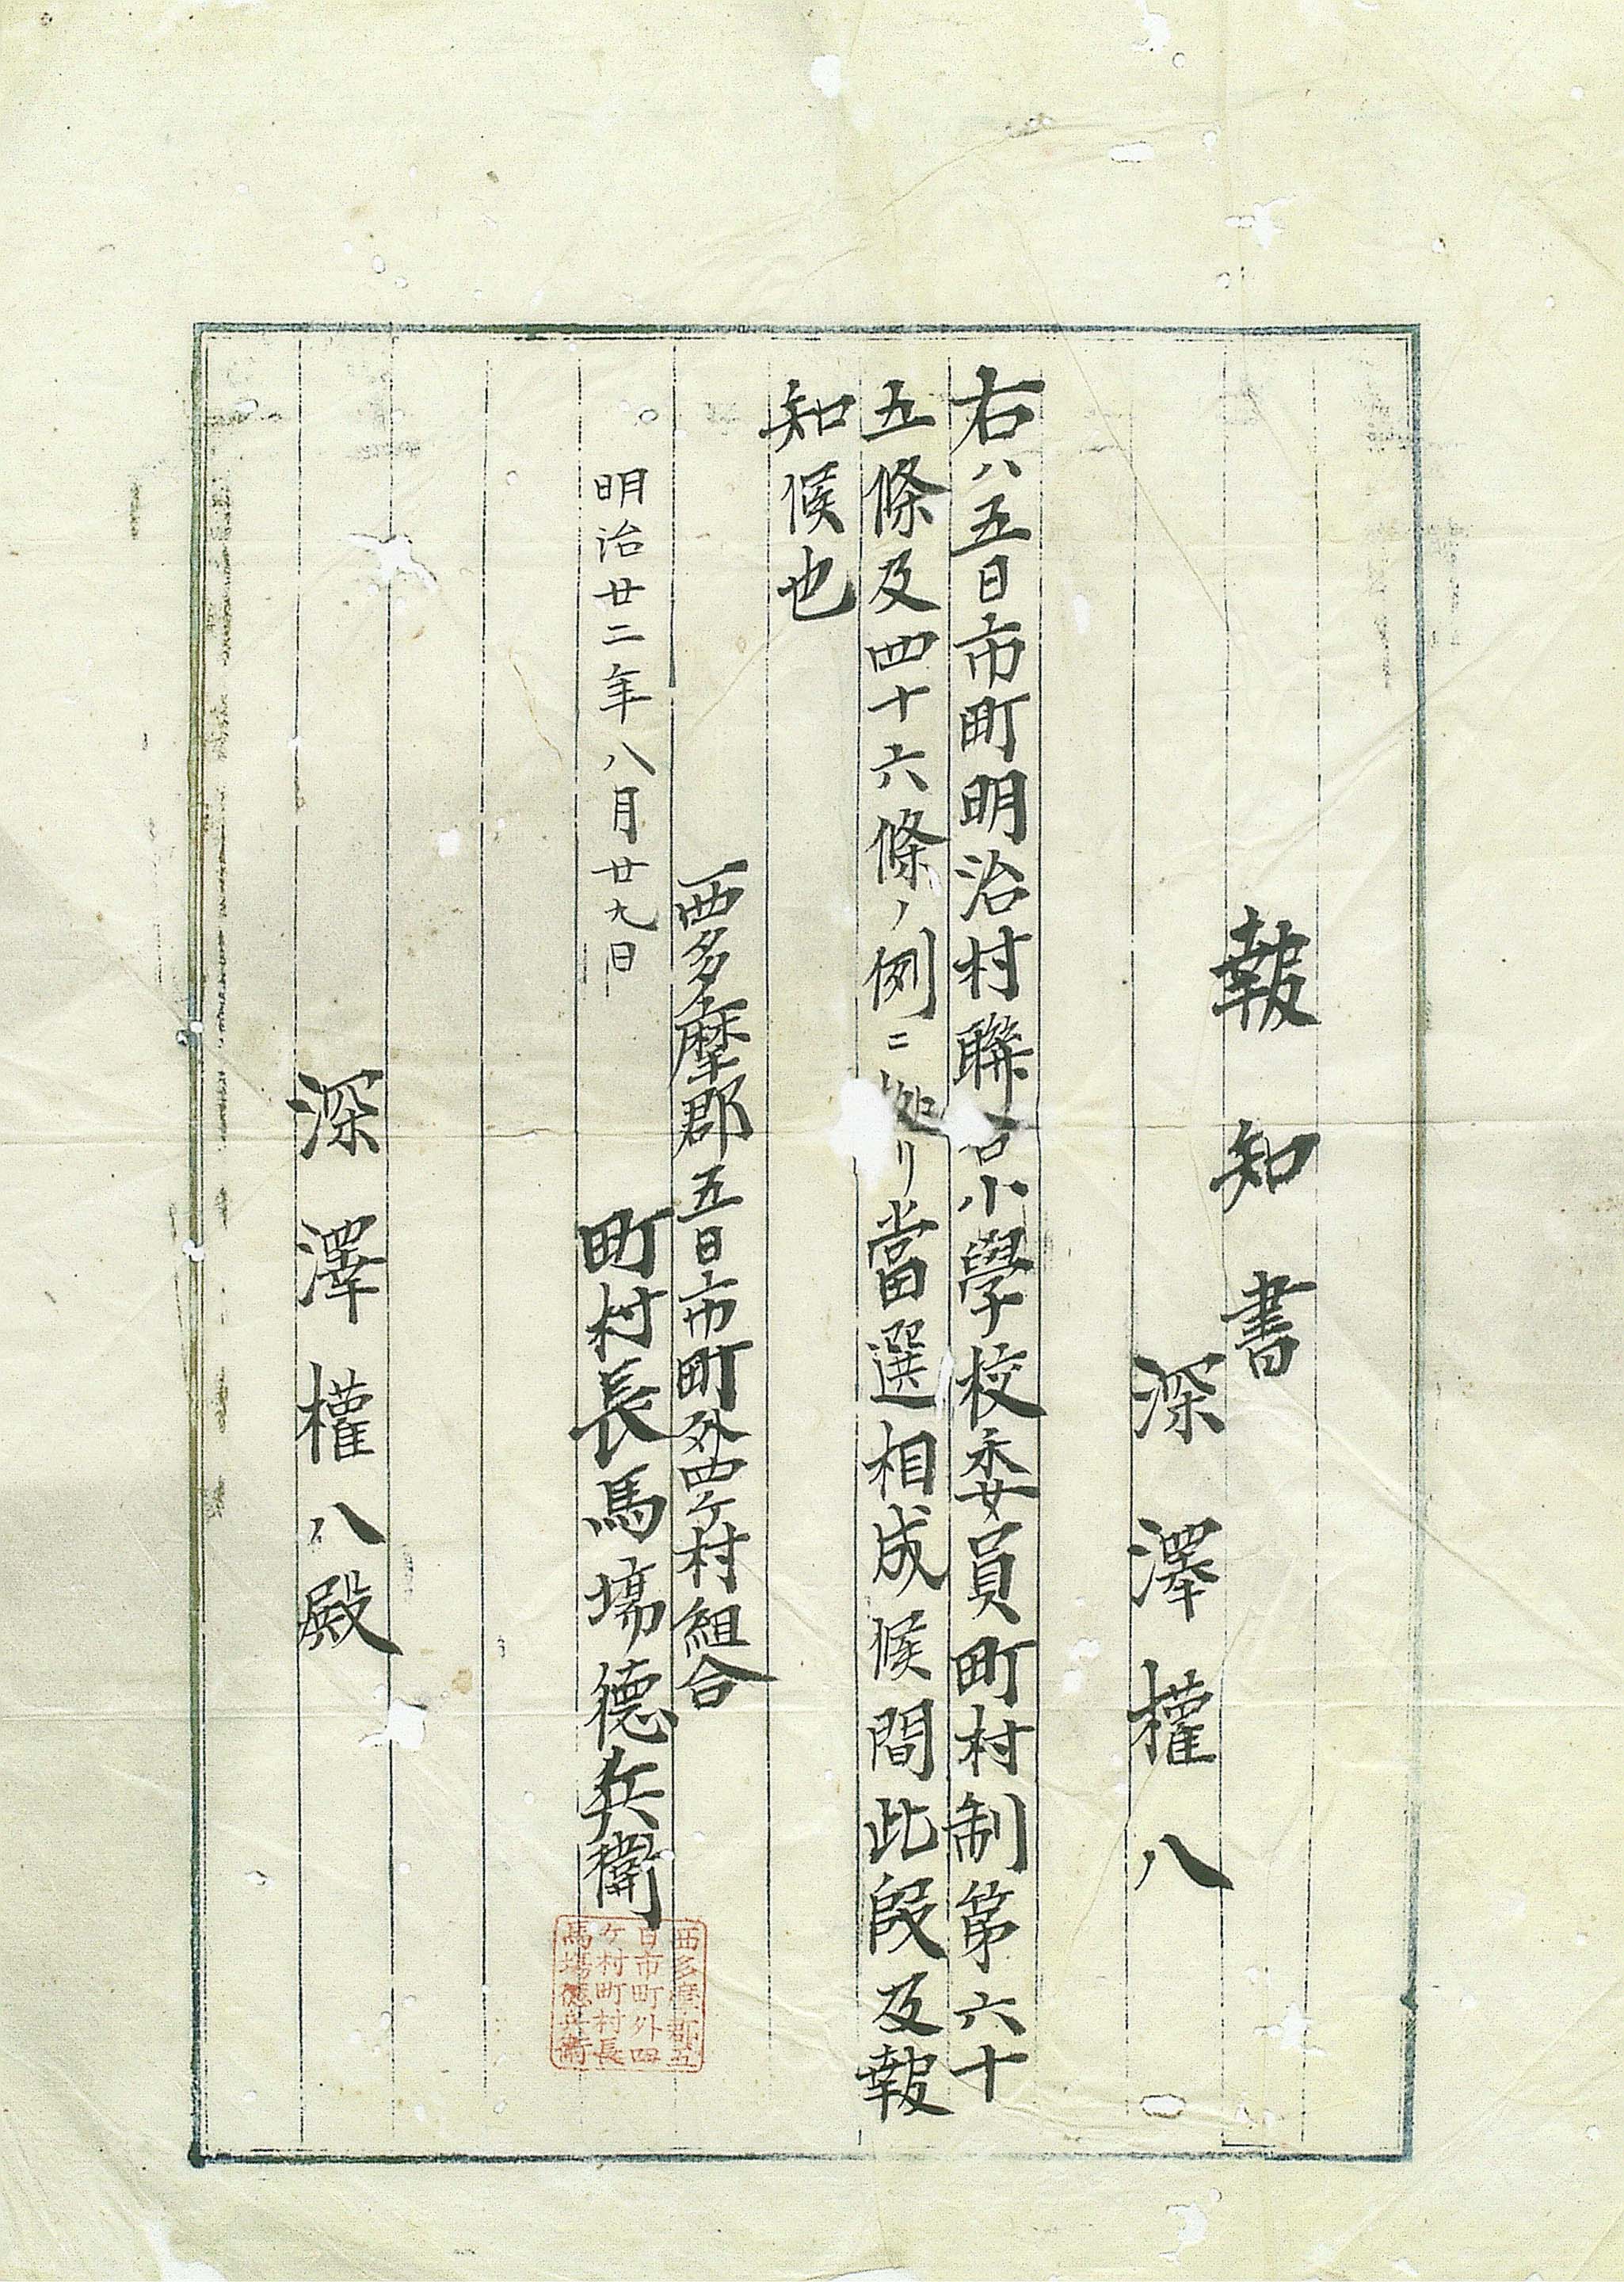 報知書
深澤權八
右ハ五日市町明治村聯合小學校委員町村制第六十
五條及四十六條ノ例ニ拠リ當選相成候間此段及報
知候也
西多摩郡五日市町外四ケ村組合
明治廿二年八月廿九日
町村長馬場德兵衛
西多摩郡五
日市町外四
ケ村町村長
馬場德兵衛
深澤權八殿